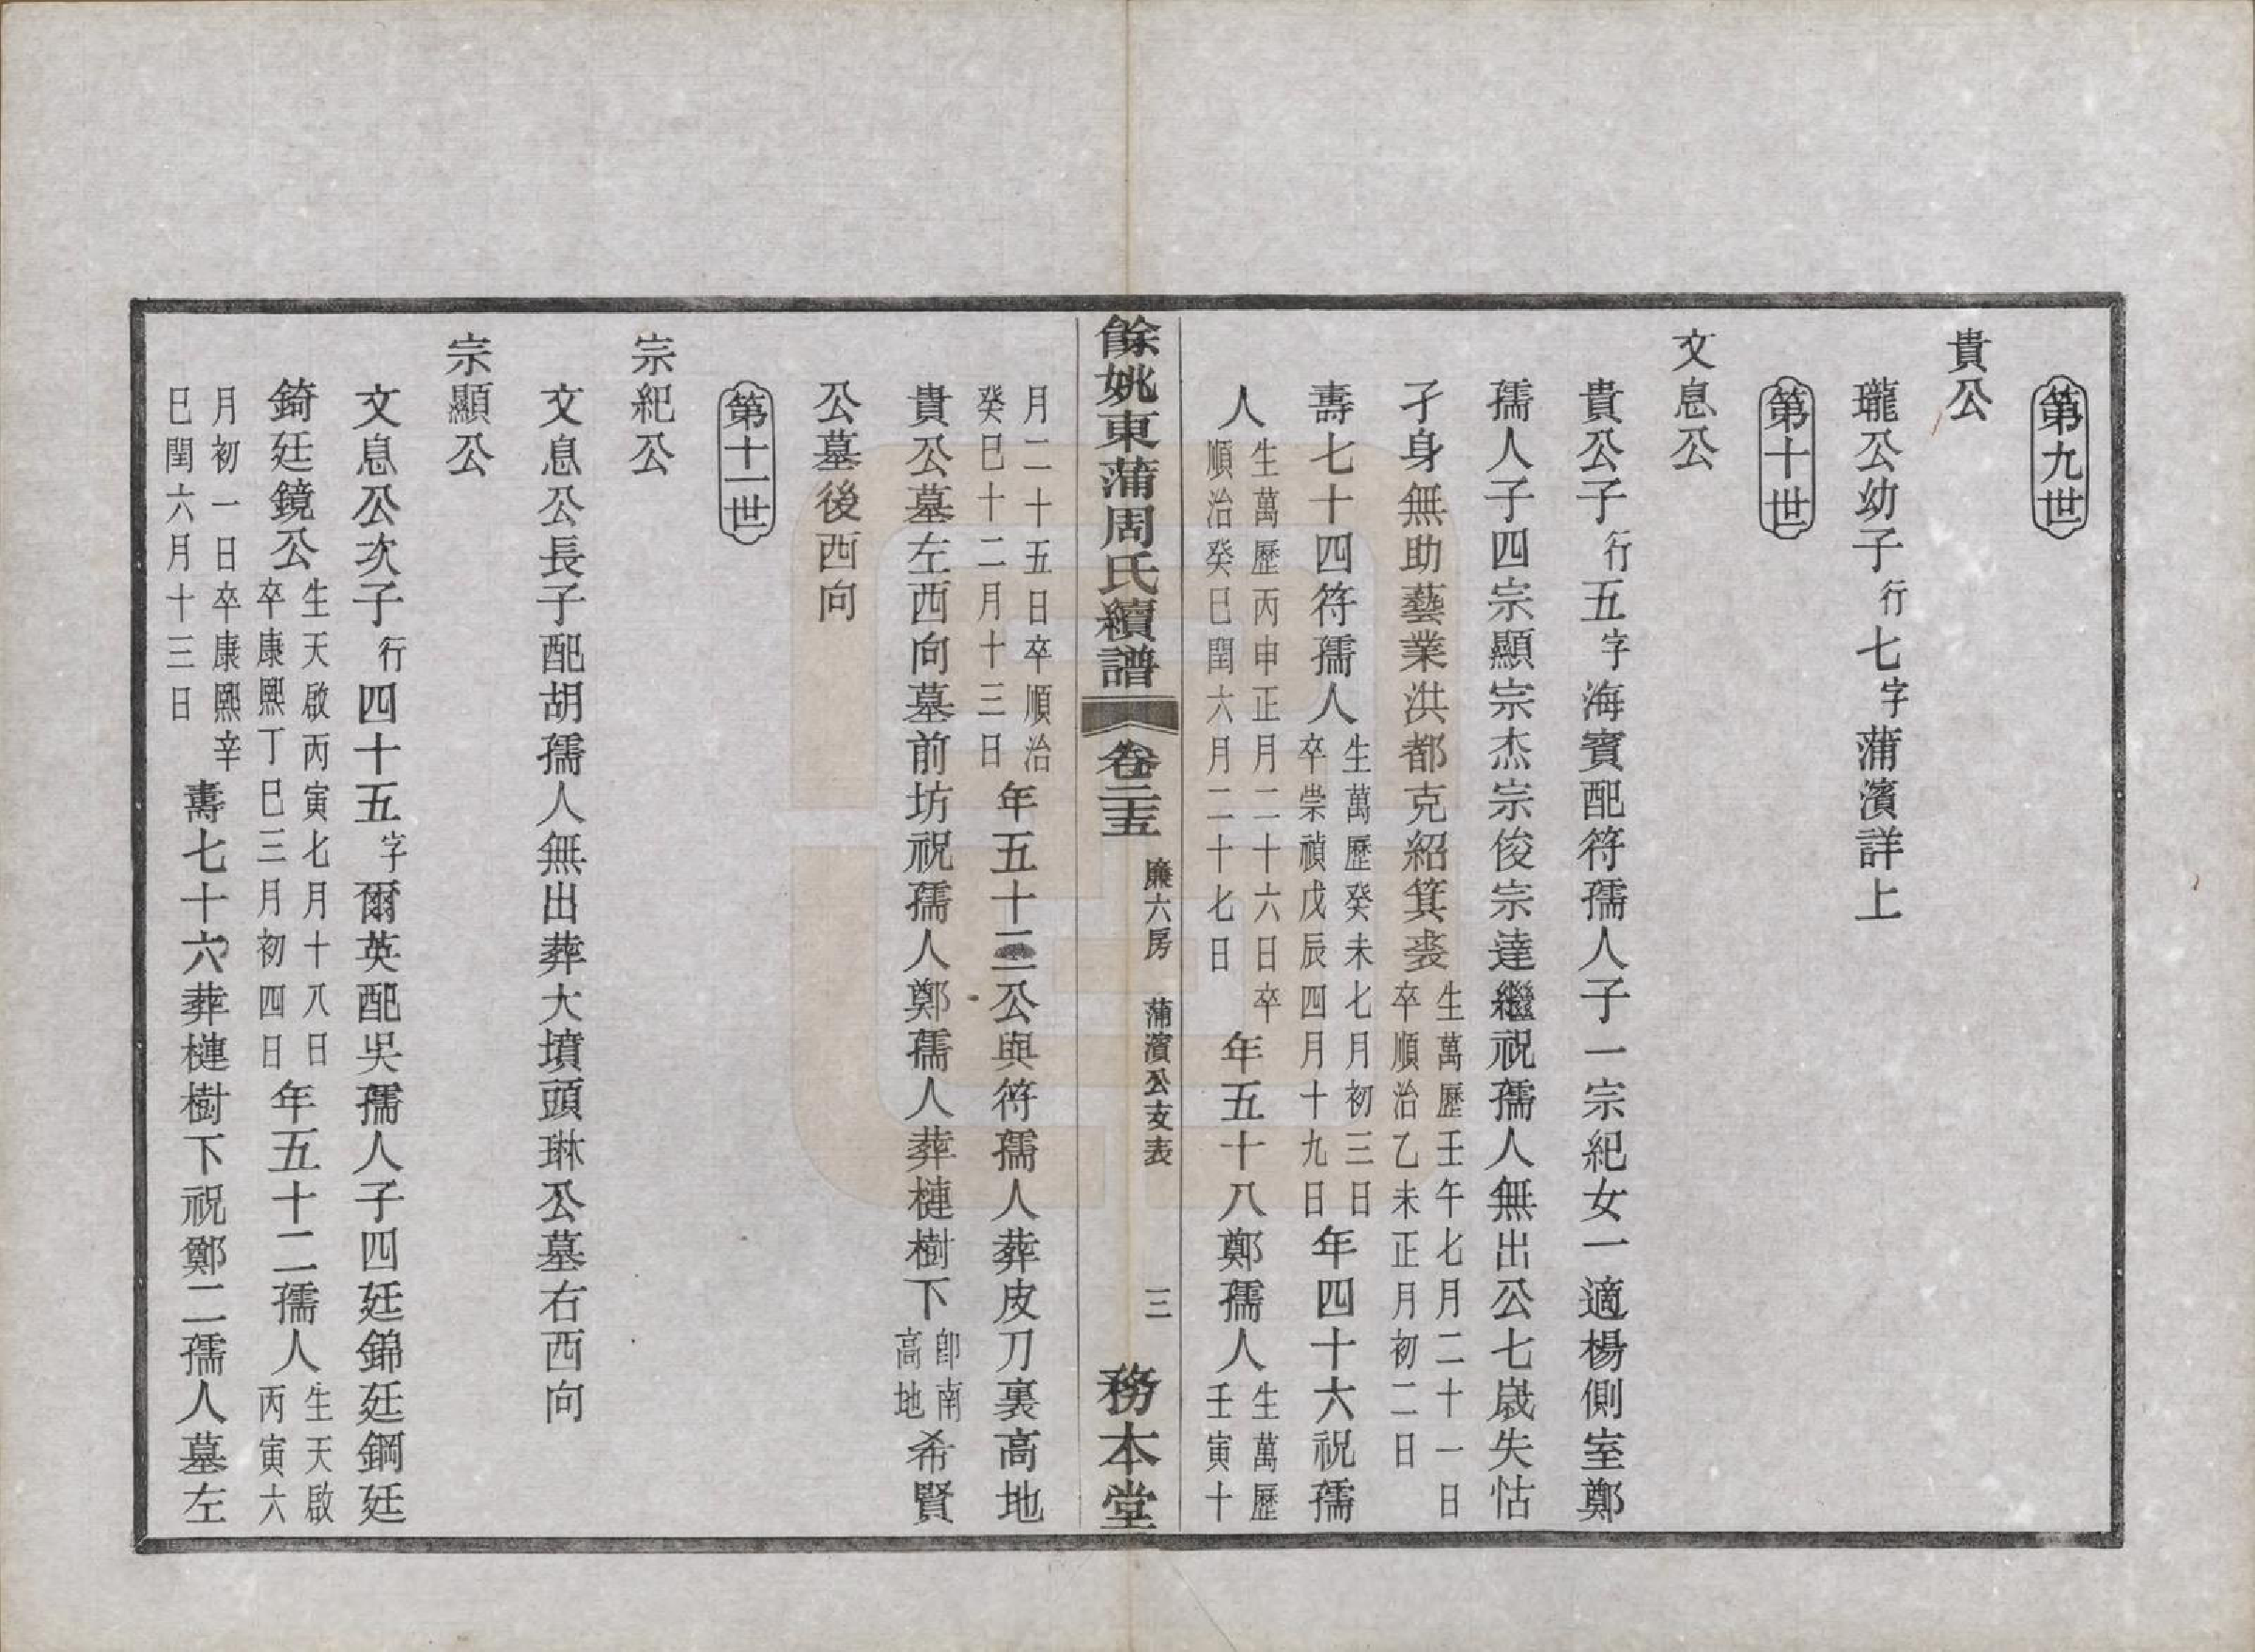 第九世
貴公
瓏公幼子行七字蒲濱詳上
第十世
文息公
貴公子行五字海賓配符孺人子一宗紀女一適楊側室鄭
孺人子四宗顯宗杰宗俊宗達繼祝孺人無出公七歲失怙
孑身無助藝業洪都克紹箕裘生萬歷壬午七月二十一日卒順治乙未正月初二日
壽七十四符孺人生萬歷癸未七月初三日卒崇禎戊辰四月十九日年四十六祝孺
人生萬歷丙申正月二十六日卒順治癸巳閏六月二十七日年五十八鄭孺人生萬歷壬寅十
餘姚東蒲周氏續譜 卷二十五 廉六房 蒲濱公支表 三 務本堂
月二十五日卒順治癸巳十二月十三日年五十二公與符孺人葬皮刀裏高地
貴公墓左西向墓前坊祝孺人鄭孺人葬槤樹下卽南高地希賢
公墓後西向
第十一世
宗紀公
文息公長子配胡孺人無出葬大墳頭琳公墓右西向
宗顯公
文息公次子行四十五字爾英配吳孺人子四廷錦廷鋼廷
錡廷鏡公生天啟丙寅七月十八日卒康熙丁巳三月初四日年五十二孺人生天啟丙寅六
月初一日卒康熙辛巳閏六月十三日壽七十六葬槤樹下祝鄭二孺人墓左